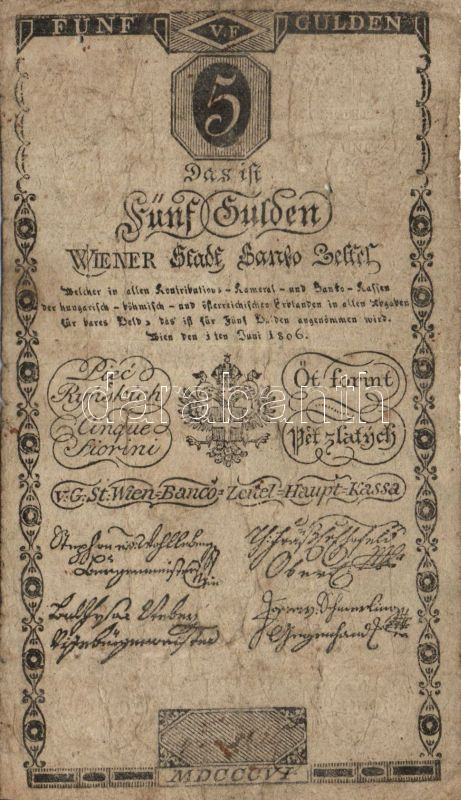 FÜNF V.F GULDEN
5
Das ist
Fünf Gulden
WIENER Stadt Banko Zettel
Welcher in allen Kontributions - Kameral - und Banko - Kassen
der hungarisch - böhmisch - und österreichischen Erblanden in allen Abgaben
für bares Geld, das ist für Fünf Gulden angenommen wird.
Wien den 1ten Juni 1806.
Pięć Ryńskich
Öt forint
Cinque Fiorini
Pět zlatých
darabanth
v. G. St. Wien-Banco-Zettel-Haupt-Kassa
Stephan
Burgermeister
Ober
Vizebürgermeister
MDCCCVI